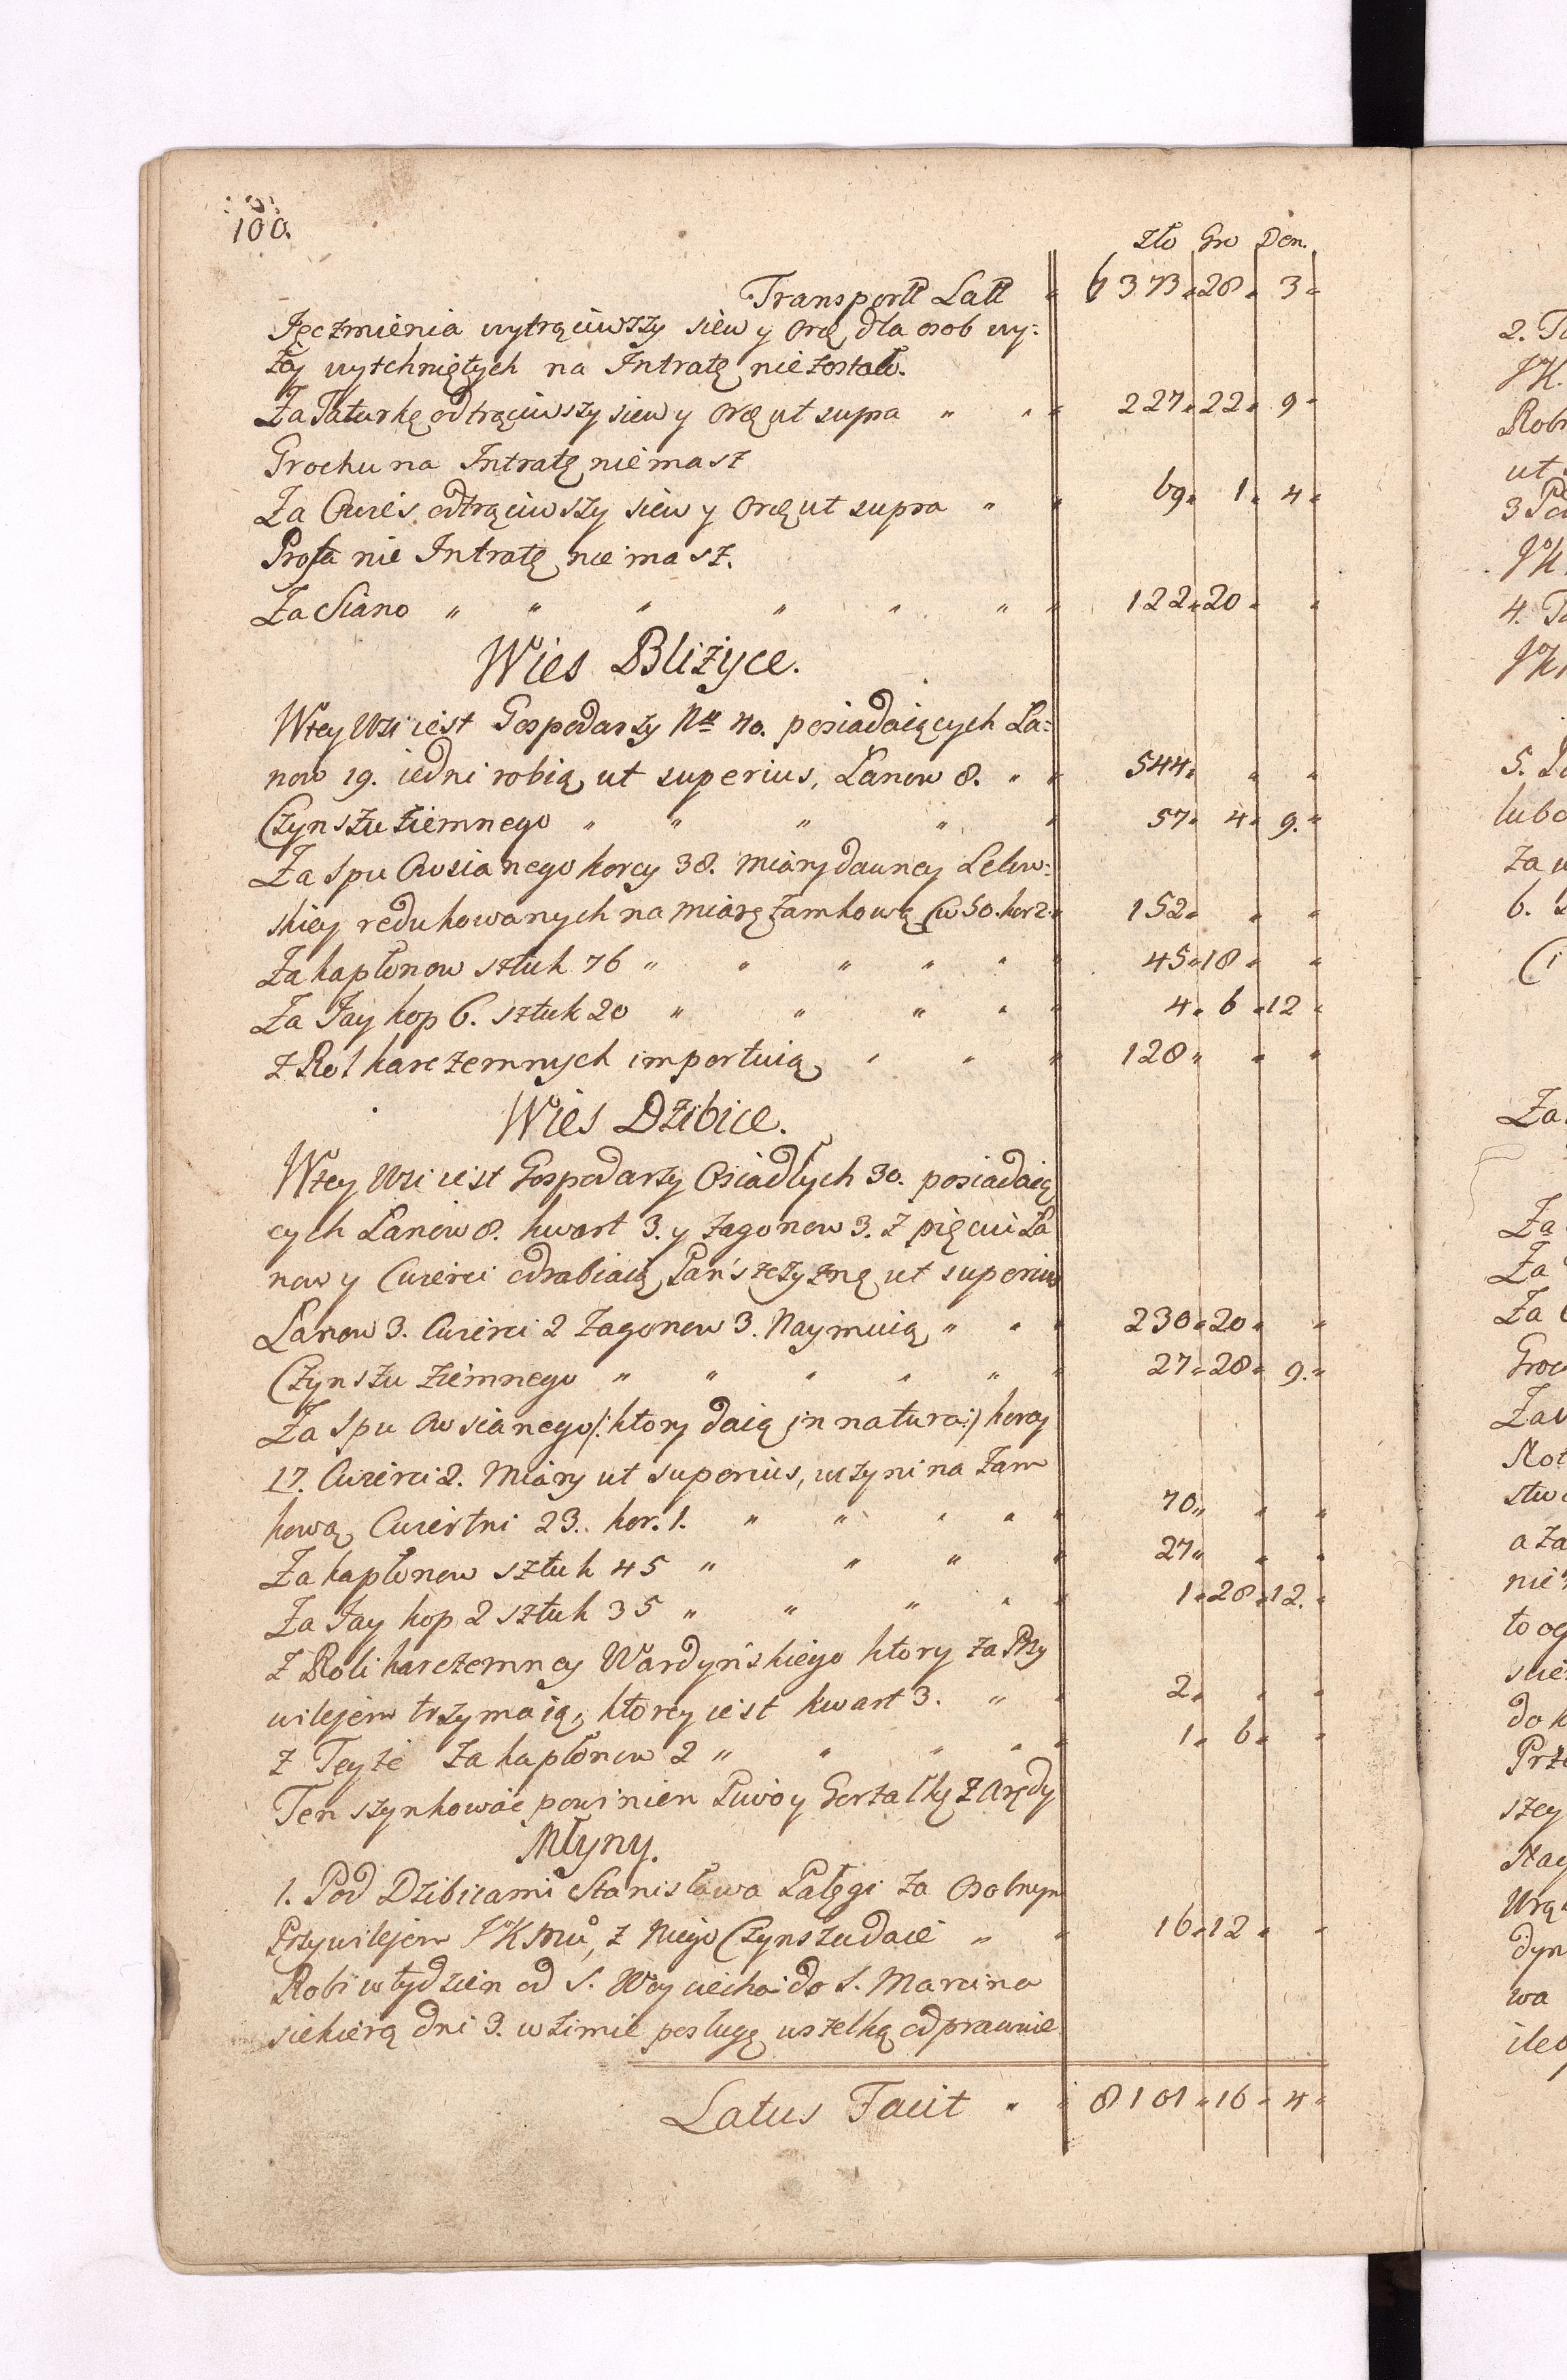 100.
Zło Gro Den.
Transportt Latt „ 6373 „ 28 „ 3 „
Jęczmienia wytrąciwszy siew y Ord. dla osob wy:
żey wytchniętych na Intratę nie został.
Za Tatarkę odtrąciwszy siew y Ord. ut supra „ „ 227 „ 22 „ 9 „
Grochu na Intratę nie masz
Za Owies odtrąciwszy siew y Ord. ut supra „ „ 69 „ 1 „ 4 „
Prosa nie Intratę nie masz.
Za Siano „ „ „ „ „ „ „ 122 „ 20 „ „
Wies Bliżyce.
W tey Wsi iest Gospodarzy N⁰ 40. posiadaiących Ła=
now 19. iedni robią ut superius, Łanow 8. „ „ 544 „ „ „
Czynszu ziemnego „ „ „ „ „ 57 „ 4 „ 9. „
Za Spu Owsianego korcy 38. miary dawney Lelow:
skiey redukowanych na miarę Zamkową Cw 50. kor 2 „ 152 „ „ „
Za kapłonow sztuk 76 „ „ „ „ „ „ 45 „ 18 „ „
Za Jay kop 6. sztuk 20 „ „ „ „ „ 4 „ 6 „ 12 „
z Rol karczemnych importuią „ „ „ 128 „ „ „
Wies Dzibice.
W tey Wsi iest Gospodarzy Osiadłych 30. posiadaią
cych Łanow 8. kwart 3. y Zagonow 3. z pięciu Ła
now y Cwierci odrabiaią Pańszczyznę ut superius
Łanow 3. Cwierci 2 Zagonow 3. Naymuią „ „ „ 230 „ 20 „ „
Czynszu Ziemnego „ „ „ „ „ „ 27 „ 28 „ 9. „
Za Spu Owsianego /: ktory daią in natura :/ korcy
17. Cwierci 2. Miary ut superius, uczyni na Zam
kową Cwiertni 23. kor. 1. „ „ „ „ „ 70 „ „ „
Za kapłonow sztuk 45 „ „ „ „ 27 „ „ „
Za Jay kop 2 sztuk 35 „ „ „ „ „ 1 „ 28 „ 12. „
z Roli karczemney Wardyńskiego ktory za Przy
wilejem trzymaią, ktorey iest kwart 3. „ „ 2 „ „ „
z Teyże za kapłonow 2 „ „ „ „ „ 1 „ 6 „ „
Ten szynkowac powinien Piwo y Gorzałkę z Arędy
Młyny.
1. Pod Dzibicami Stanisława Pałęgi za Osobnym
Przywilejem JKMci, z Niego Czynszu daie „ „ 16 „ 12 „ „
Robi w tydzien od S. Woyciecha do S. Marcina
siekierą dni 3. w zimie posługę wszelką odprawuie
Latus Facit „ „ 8101 „ 16 „ 4 „